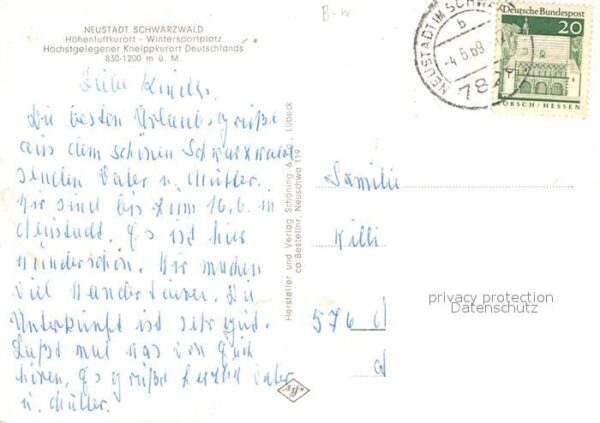 NEUSTADT SCHWARZWALD
Höhenluftkurort - Wintersportplatz
Höchstgelegener Kneippkurort Deutschlands
830-1200 m ü. M.
Liebe Kinder.
Die besten Urlaubsgrüße
aus dem schönen Schwarzwald
senden Vater u. Mutter.
Wir sind bis zum 16.6. in
Neustadt. Es ist hier
wunderschön. Wir machen
viel Wandertouren. Die
Unterkunft ist sehr gut.
Laßt mal was von Euch
hören. Es grüßt herzlich Vater
u. Mutter.
Hersteller und Verlag Schöning & Co., Lübeck
ca Bestellnr. Neuschwa 119
B-W
NEUSTADT IM SCHWARZW
b
-4.6.69
782
Deutsche Bundespost
20
LORSCH/HESSEN
Familie
Willi
576
d
privacy protection
Datenschutz